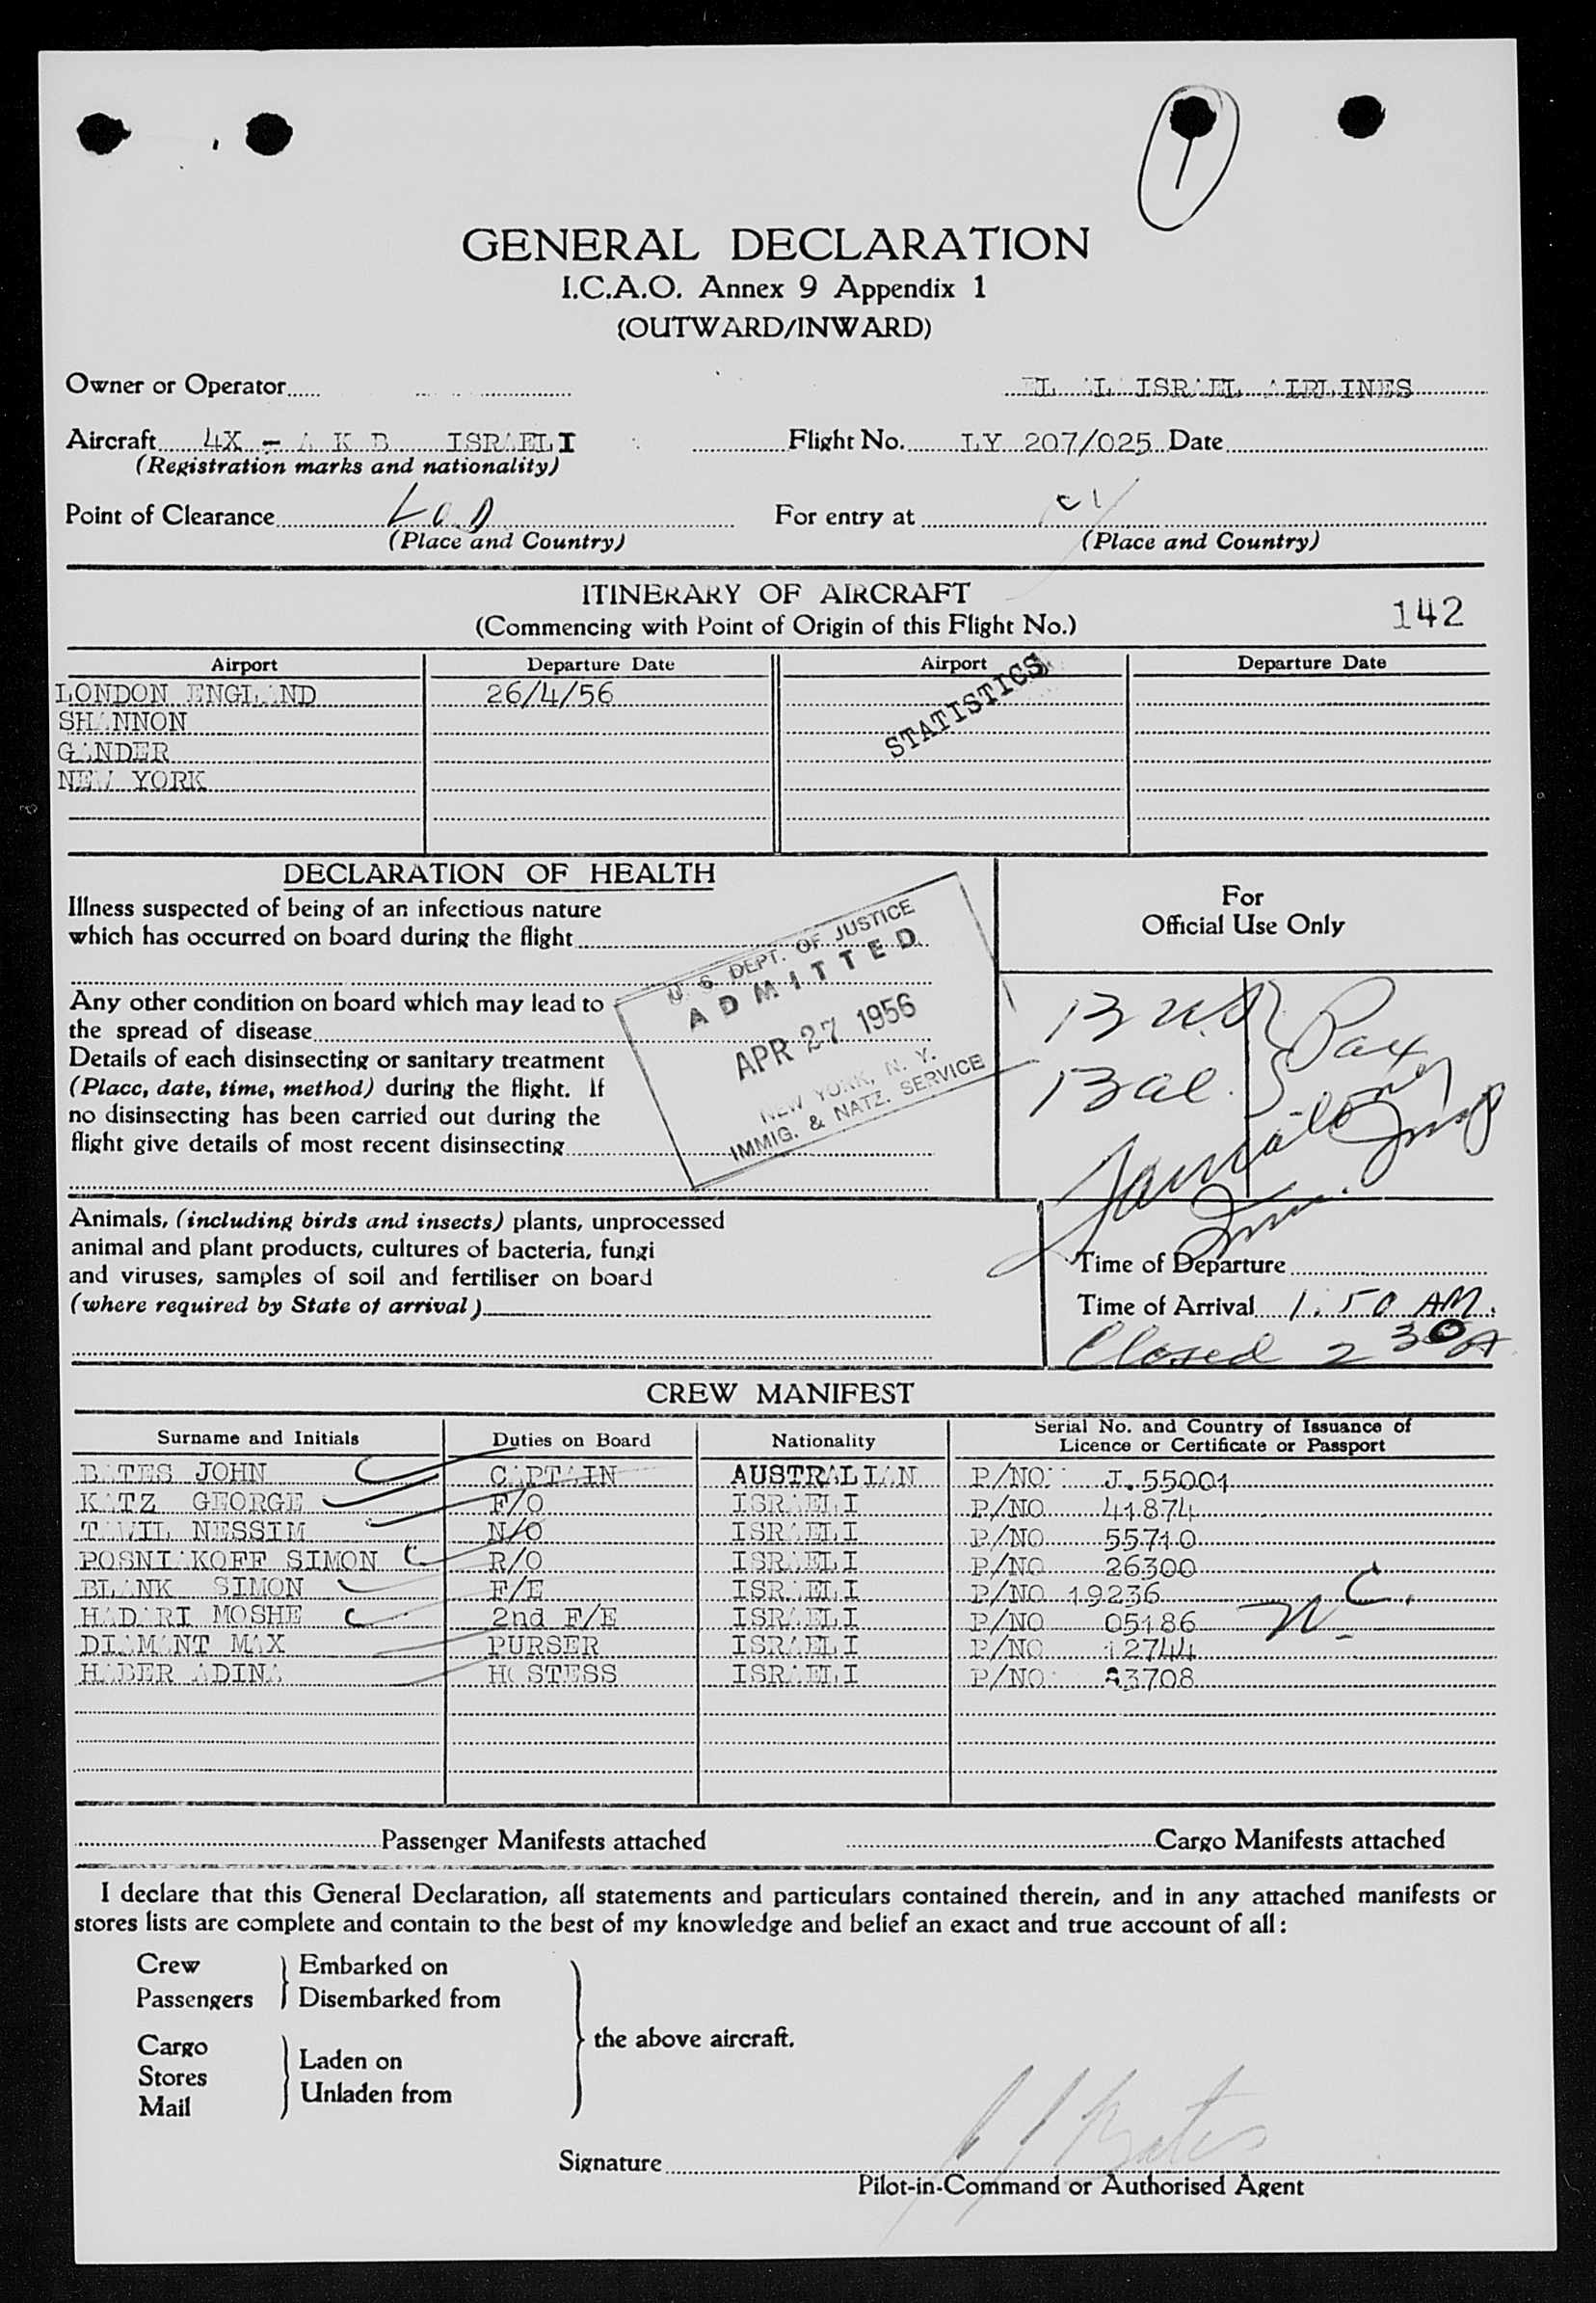 GENERAL DECLARATION
I.C.A.O. Annex 9 Appendix 1
(OUTWARD/INWARD)
Owner or Operator EL AL ISRAEL AIRLINES
Aircraft 4X - A K B ISRAELI Flight No. LY 207/025 Date
(Registration marks and nationality)
Point of Clearance LOD For entry at
(Place and Country) (Place and Country)
ITINERARY OF AIRCRAFT
(Commencing with Point of Origin of this Flight No.)
142
Airport Departure Date Airport Departure Date
LONDON ENGLAND 26/4/56
SHANNON
GANDER
NEW YORK
STATISTICS
DECLARATION OF HEALTH
Illness suspected of being of an infectious nature
which has occurred on board during the flight
Any other condition on board which may lead to
the spread of disease
Details of each disinsecting or sanitary treatment
(Place, date, time, method) during the flight. If
no disinsecting has been carried out during the
flight give details of most recent disinsecting
U. S. DEPT. OF JUSTICE
ADMITTED
APR 27 1956
NEW YORK, N. Y.
IMMIG. & NATZ. SERVICE
For
Official Use Only
Pax
Animals, (including birds and insects) plants, unprocessed
animal and plant products, cultures of bacteria, fungi
and viruses, samples of soil and fertiliser on board
(where required by State of arrival)
Time of Departure
Time of Arrival 1.50 AM.
Closed 2 30 A
CREW MANIFEST
Surname and Initials Duties on Board Nationality Serial No. and Country of Issuance of Licence or Certificate or Passport
BATES JOHN CAPTAIN AUSTRALIAN P/NO. J.55001
KATZ GEORGE F/O ISRAELI P/NO 41874
TAWIL NESSIM N/O ISRAELI P/NO 55710
POSNIAKOFF SIMON R/O ISRAELI P/NO 26300
BLANK SIMON F/E ISRAELI P/NO 19236
HADARI MOSHE 2nd F/E ISRAELI P/NO 05186
DIAMANT MAX PURSER ISRAELI P/NO 12744
HABER ADINA HOSTESS ISRAELI P/NO 83708
Passenger Manifests attached Cargo Manifests attached
I declare that this General Declaration, all statements and particulars contained therein, and in any attached manifests or
stores lists are complete and contain to the best of my knowledge and belief an exact and true account of all:
Crew Embarked on
Passengers Disembarked from
the above aircraft.
Cargo
Stores Laden on
Mail Unladen from
J J Bates
Signature
Pilot-in-Command or Authorised Agent